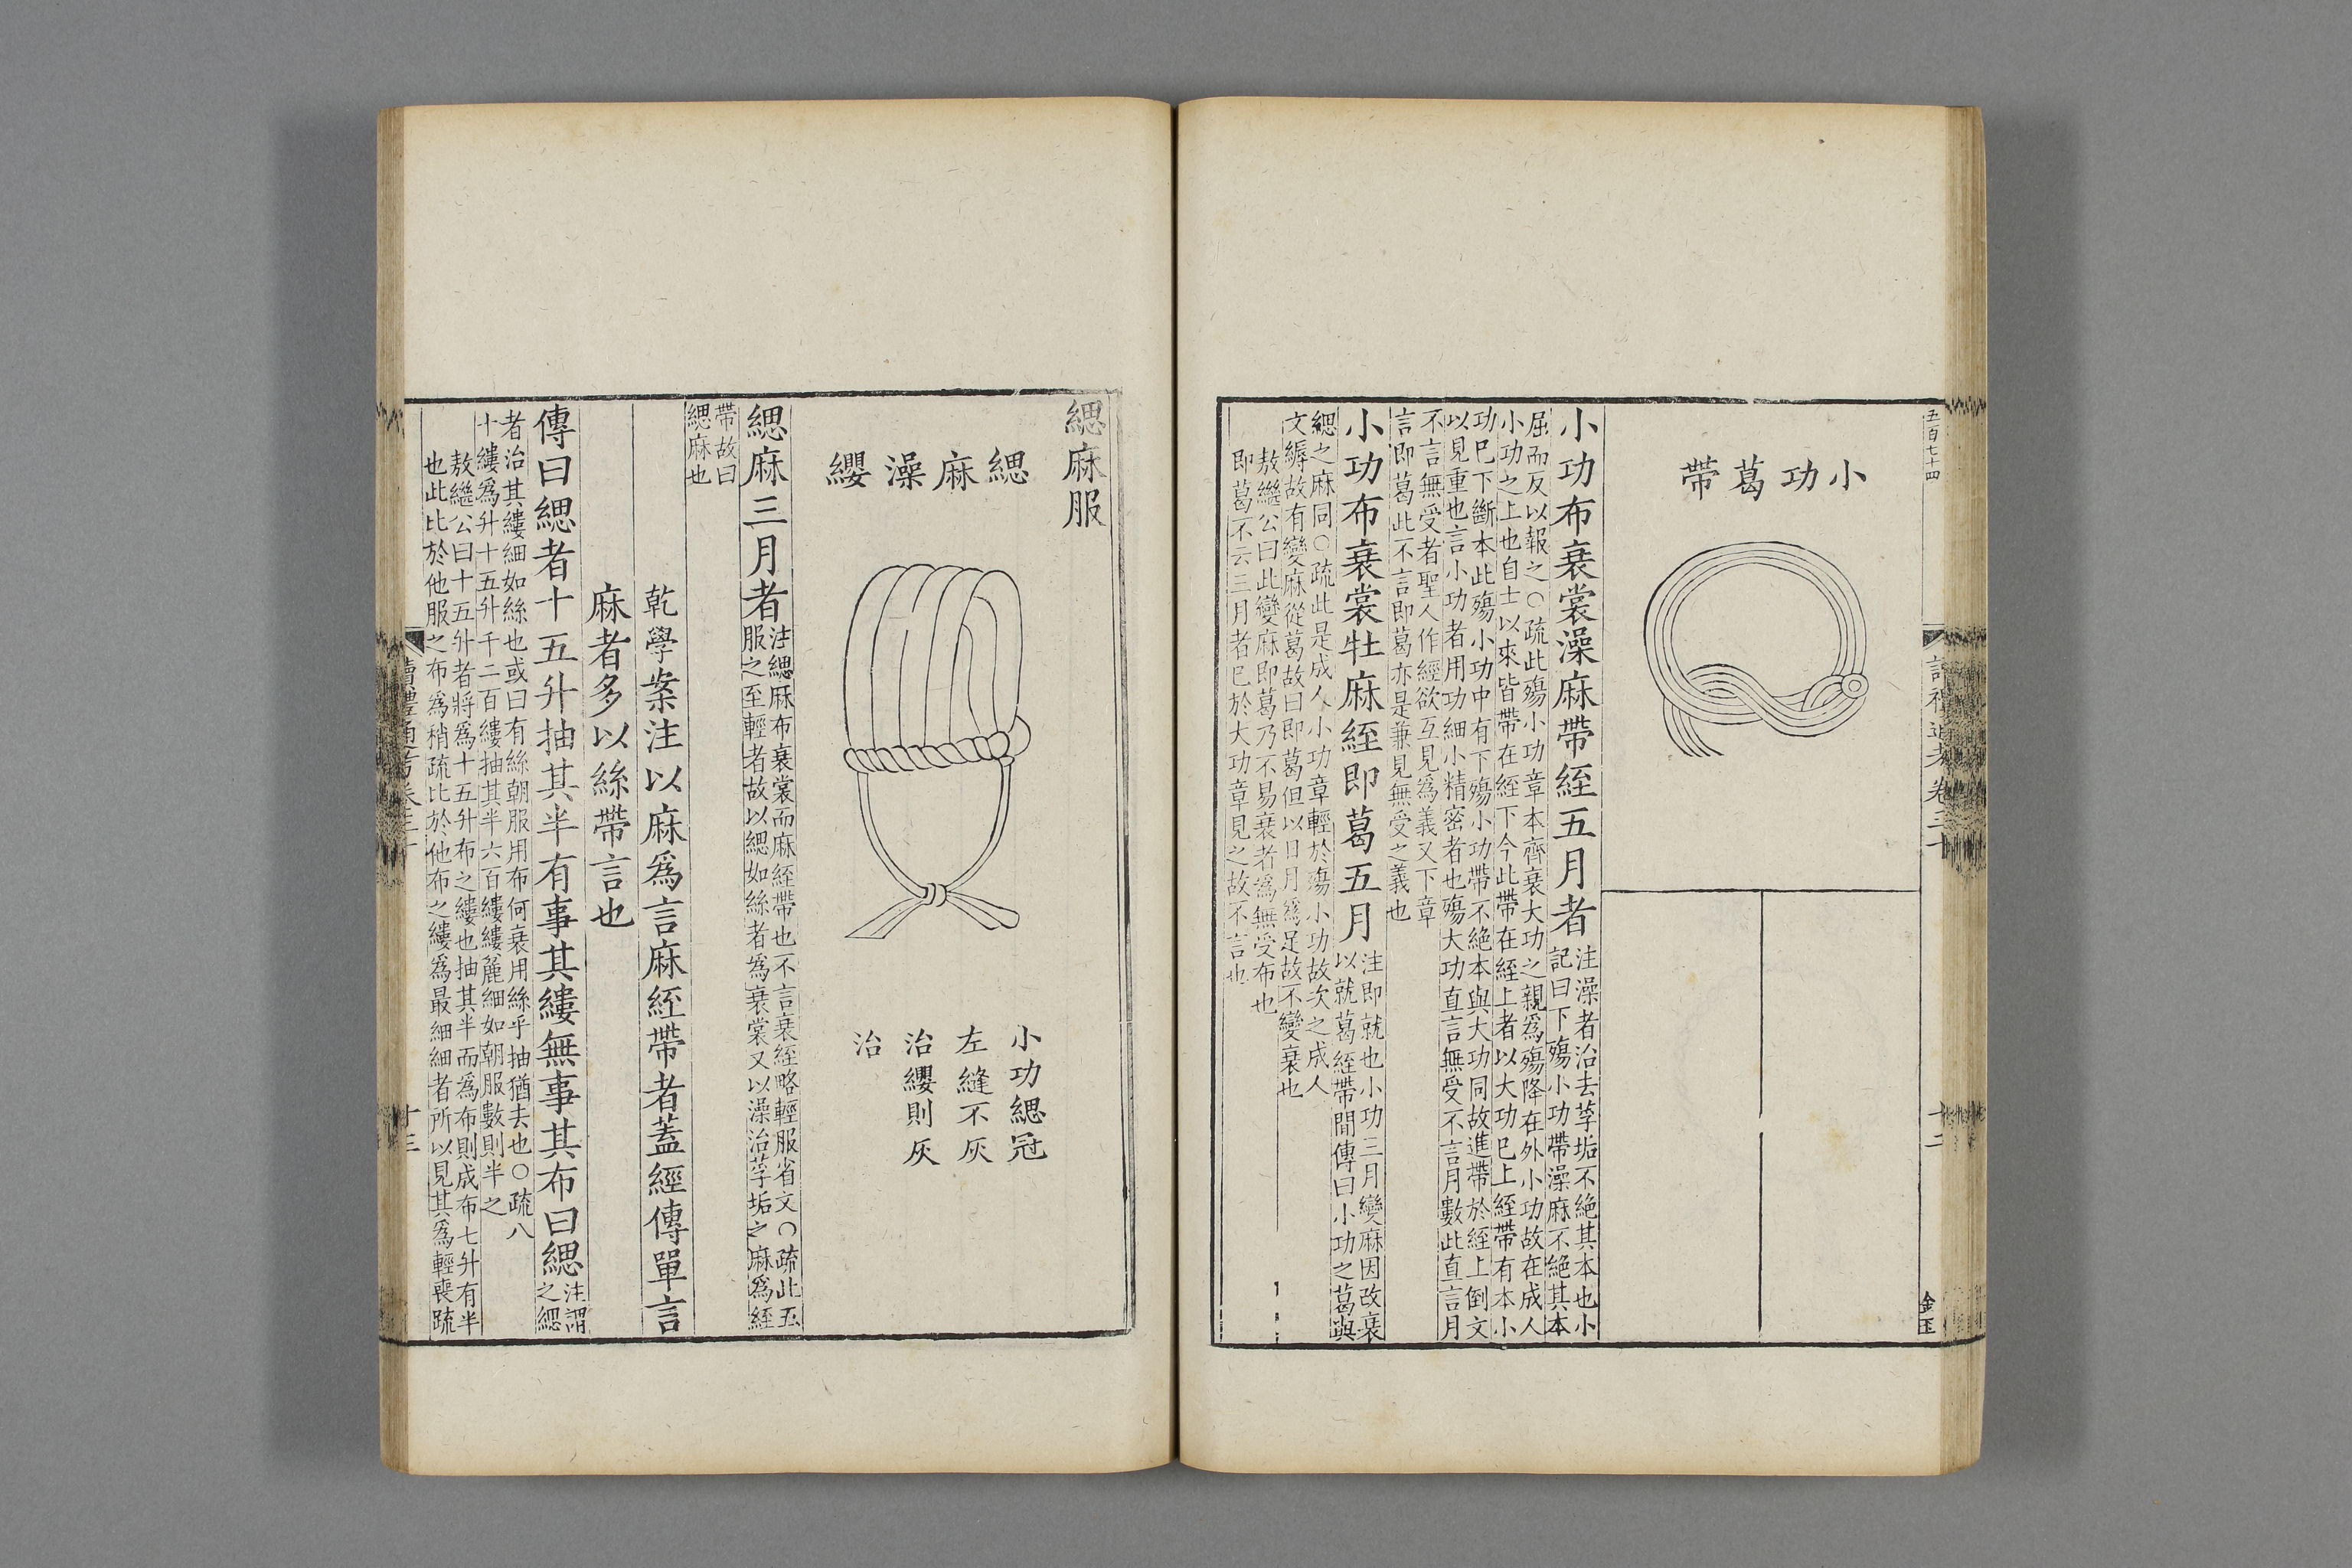 五百七十四
讀禮通考卷三十
十二
小功葛帶
小功布衰裳澡麻帶絰五月者
注澡者治去莩垢不絕其本也小
記曰下殤小功帶澡麻不絕其本
屈而反以報之○疏此殤小功章本齊衰大功之親爲殤降在外小功故在成人
小功之上也自士以來皆帶在絰下今此帶在絰上者以大功巳上絰帶有本小
功巳下斷本此殤小功中有下殤小功帶不絕本與大功同故進帶於絰上倒文
以見重也言小功者用功細小精密者也殤大功直言無受不言月數此直言月
不言無受者聖人作經欲互見爲義又下章
言即葛此不言即葛亦是兼見無受之義也
小功布衰裳牡麻絰即葛五月
注即就也小功三月變麻因改衰
以就葛絰帶間傳曰小功之葛與
緦之麻同○疏此是成人小功章輕於殤小功故次之成人
文縟故有變麻從葛故曰即葛但以日月爲足故不變衰也
敖繼公曰此變麻即葛乃不易衰者爲無受布也
即葛不云三月者巳於大功章見之故不言也
緦麻服
緦麻澡纓
小功緦冠
左縫不灰
治纓則灰
治
緦麻三月者
注緦麻布衰裳而麻絰帶也不言衰絰略輕服省文○疏此五
服之至輕者故以緦如絲者爲衰裳又以澡治莩垢之麻爲絰
帶故曰
緦麻也
乾學案注以麻爲言麻絰帶者蓋經傳單言
麻者多以絲帶言也
傳曰緦者十五升抽其半有事其縷無事其布曰緦
注謂
之緦
者治其縷細如絲也或曰有絲朝服用布何衰用絲乎抽猶去也○疏八
十縷爲升十五升千二百縷抽其半六百縷縷麄細如朝服數則半之
敖繼公曰十五升者將爲十五升布之縷也抽其半而爲布則成布七升有半
也此比於他服之布爲稍疏比於他布之縷爲最細細者所以見其爲輕喪疏
讀禮通考卷三十
十三